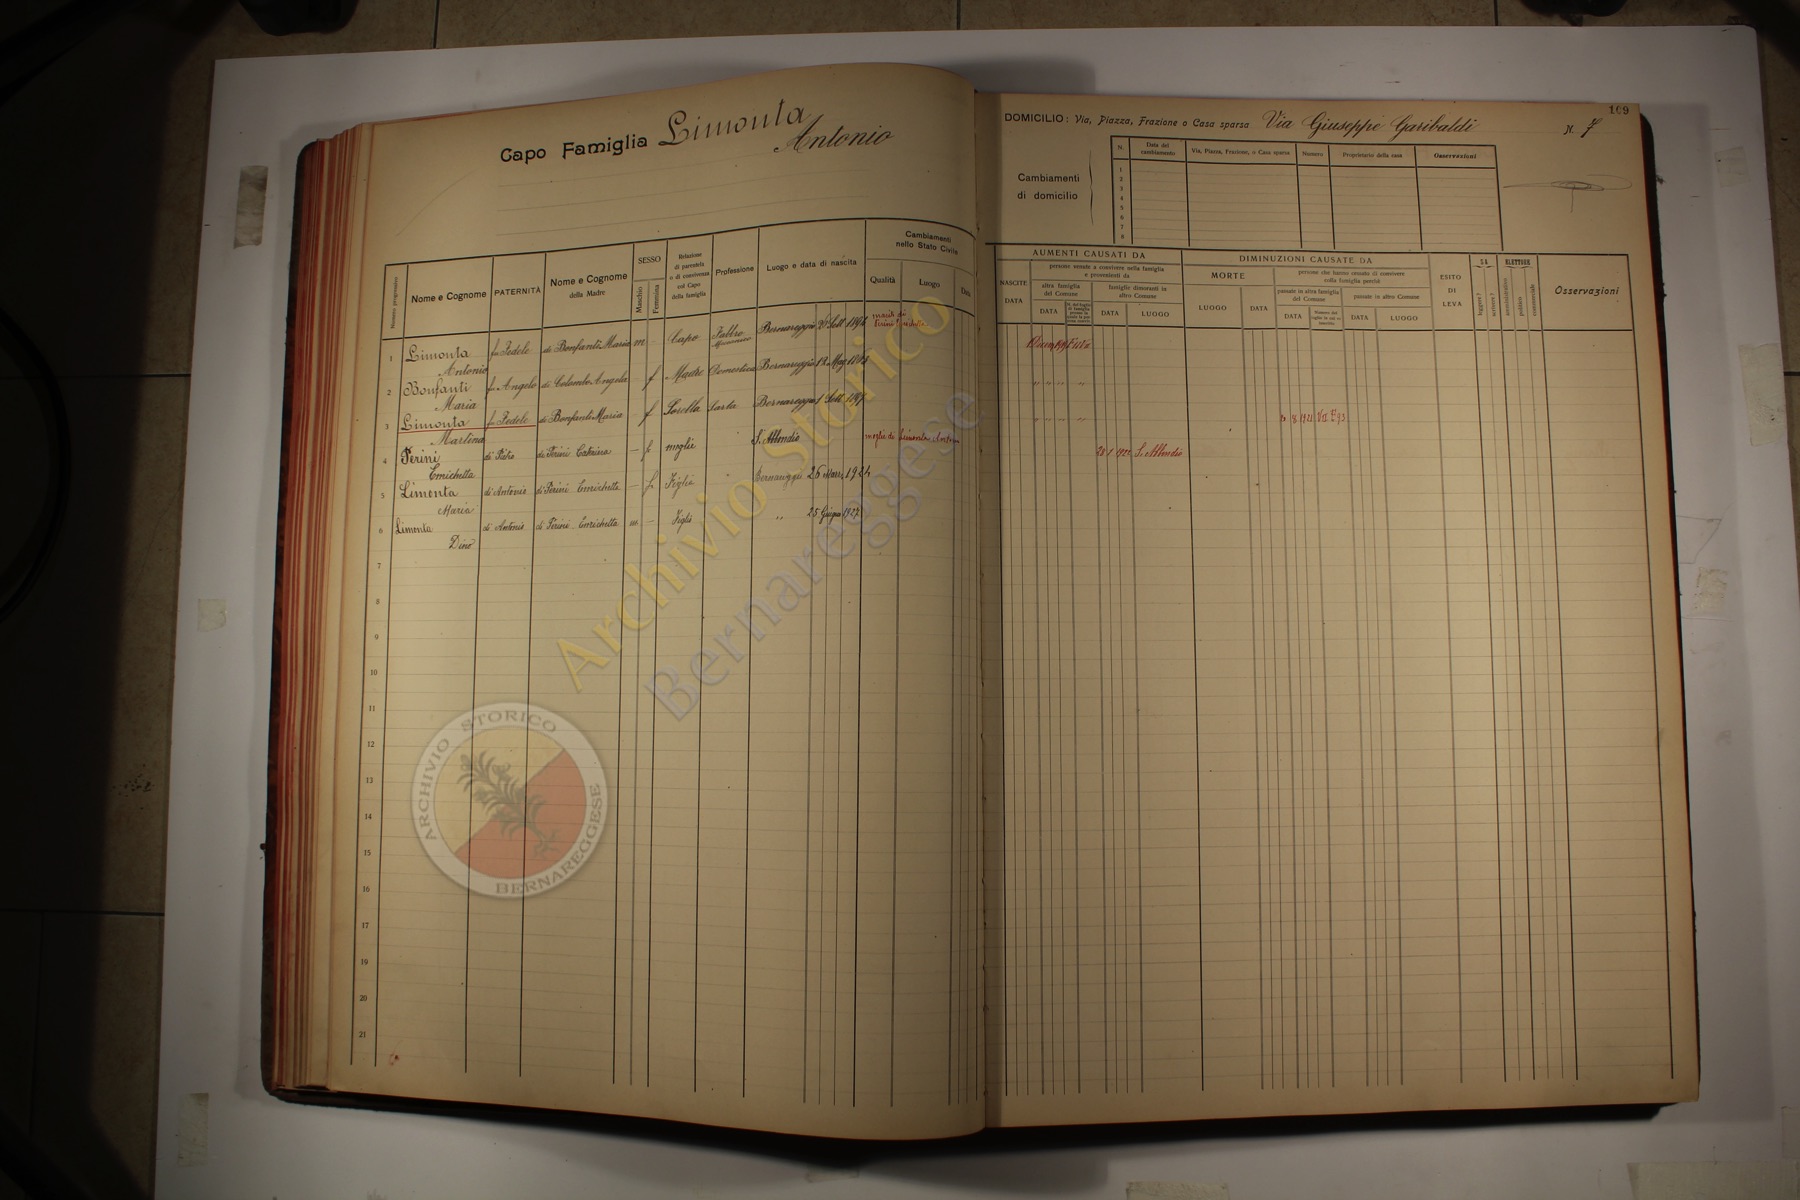 Capo Famiglia Limonta
Antonio
Nome e Cognome
PATERNITÀ
Nome e Cognome
della Madre
SESSO
Maschio
Femmina
Relazione
di parentela
o di convivenza
col Capo
della famiglia
Professione
Luogo e data di nascita
Cambiamenti
nello Stato Civile
Qualità
Luogo
Data
1 Limonta Antonio fu Fedele di Bonfanti Maria m - Capo Fabbro Bernareggio
marito di
Perini Enrichetta
2 Bonfanti Maria fu Angelo di Colombo Angela - f Madre Domestica Bernareggio
3 Limonta Martina fu Fedele di Bonfanti Maria - f Sorella Sarta Bernareggio
4 Perini Enrichetta di Pietro di Perini Caterina - f moglie S. Abbondio moglie di Limonta Antonio
5 Limonta Maria di Antonio di Perini Enrichetta - f Figlia " Bernareggio 26 Marz. 1924
6 Limonta Dino di Antonio di Perini Enrichetta m - Figlio " 25 Giugno 1927
7
8
9
10
11
12
13
14
15
16
17
18
19
20
21
109
DOMICILIO: Via, Piazza, Frazione o Casa sparsa Via Giuseppe Garibaldi N. 7
Cambiamenti
di domicilio
N.
Data del
cambiamento
Via, Piazza, Frazione, o Casa sparsa
Numero
Proprietario della casa
Osservazioni
1
2
3
4
5
6
7
8
AUMENTI CAUSATI DA
NASCITE
DATA
persone venute a convivere nella famiglia
e provenienti da
altra famiglia
del Comune
DATA
famiglie dimoranti in
altro Comune
DATA
LUOGO
DIMINUZIONI CAUSATE DA
MORTE
LUOGO
DATA
persone che hanno cessato di convivere
colla famiglia perchè
passate in altra famiglia
del Comune
DATA
passate in altro Comune
DATA
LUOGO
ESITO
DI
LEVA
SA
leggere?
scrivere?
ELETTORE
amministrativo
politico
commerciale
Osservazioni
S. Abbondio
Archivio Storico
Bernareggese
ARCHIVIO STORICO
BERNAREGGESE